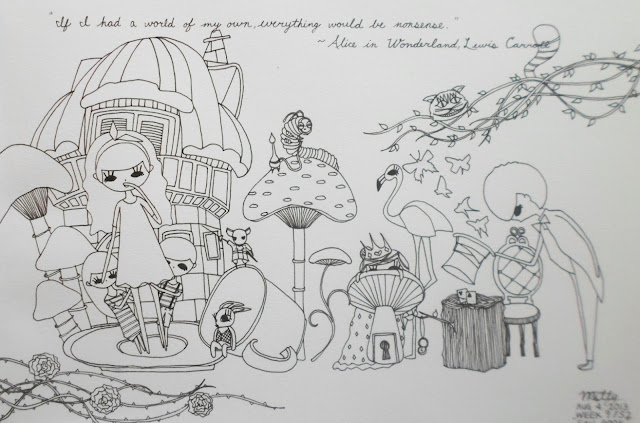 "If I had a world of my own, everything would be nonsense."
~ Alice in Wonderland, Lewis Carroll